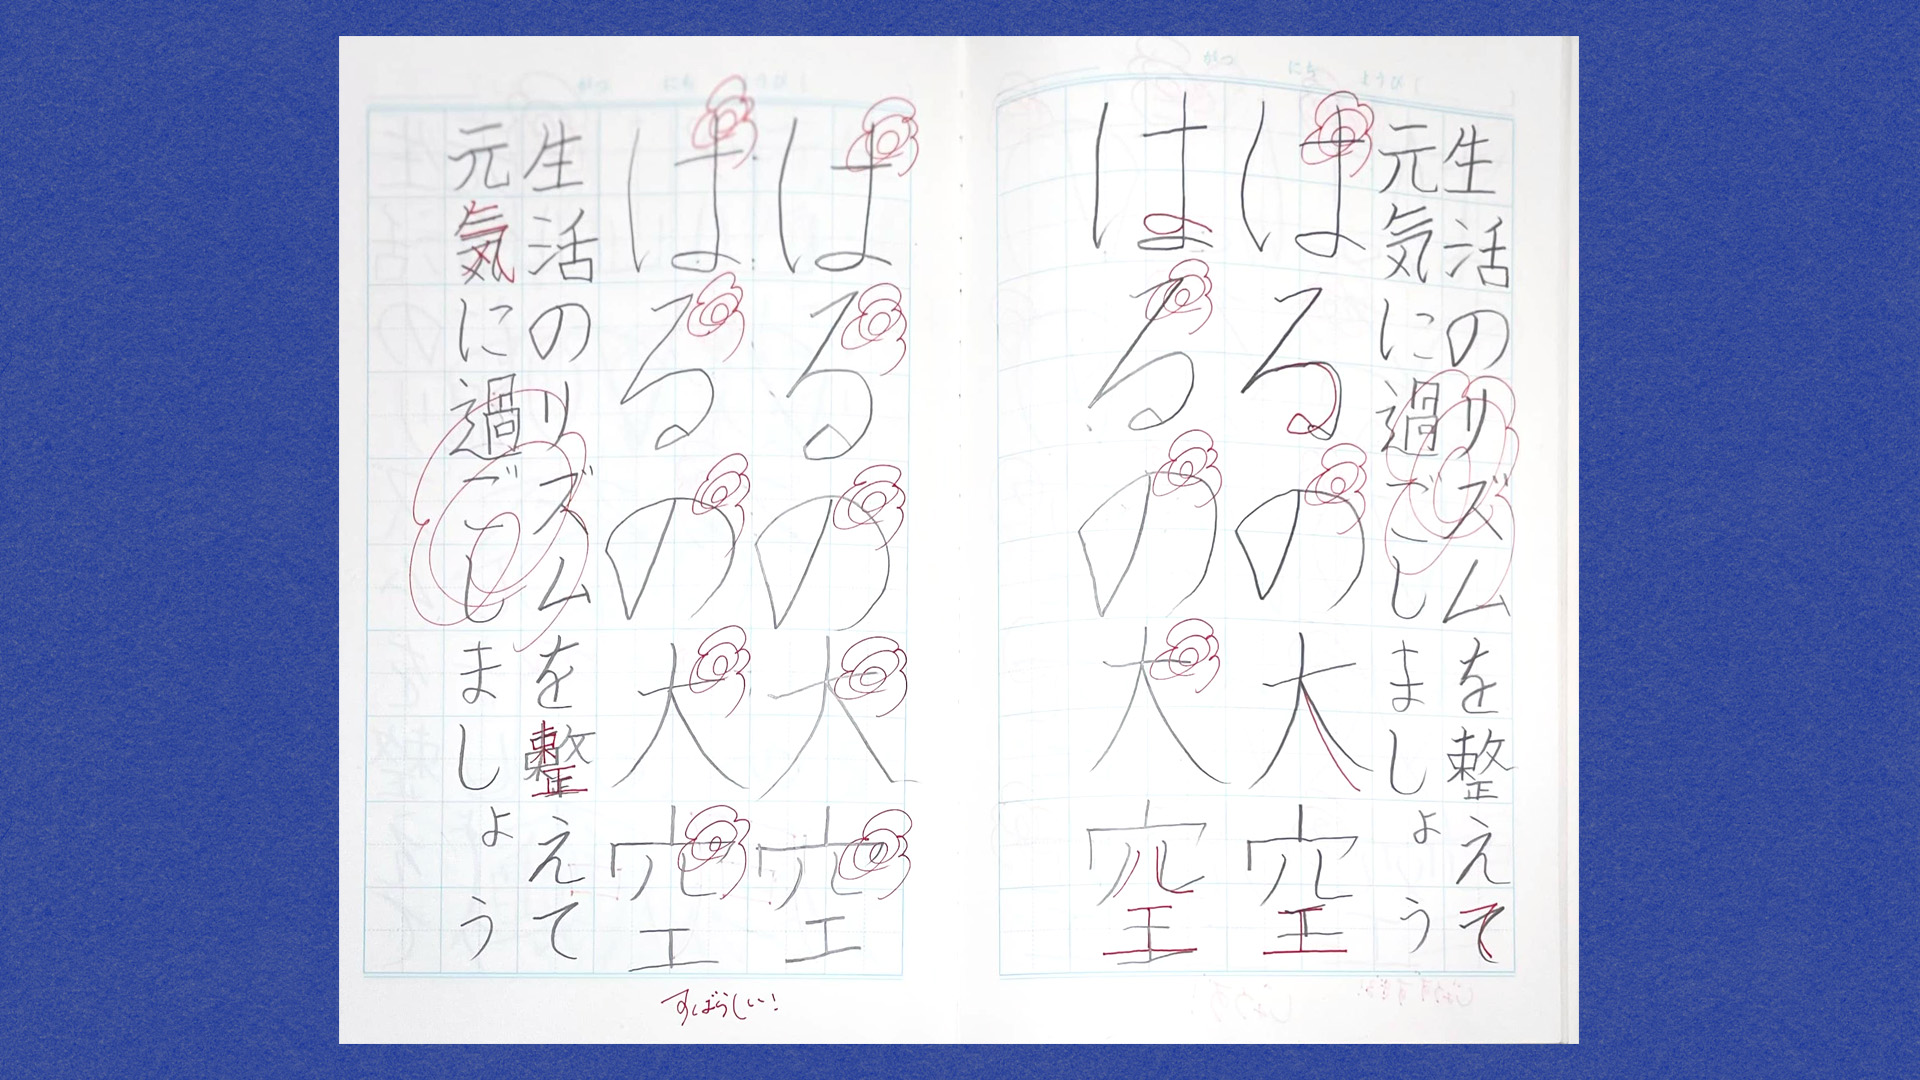 がつ にち ようび
生活のリズムを整えて
元気に過ごしましょう
はるの大空
はるの大空
がつ にち ようび
はるの大空
はるの大空
生活のリズムを整えて
元気に過ごしましょう
すばらしい!